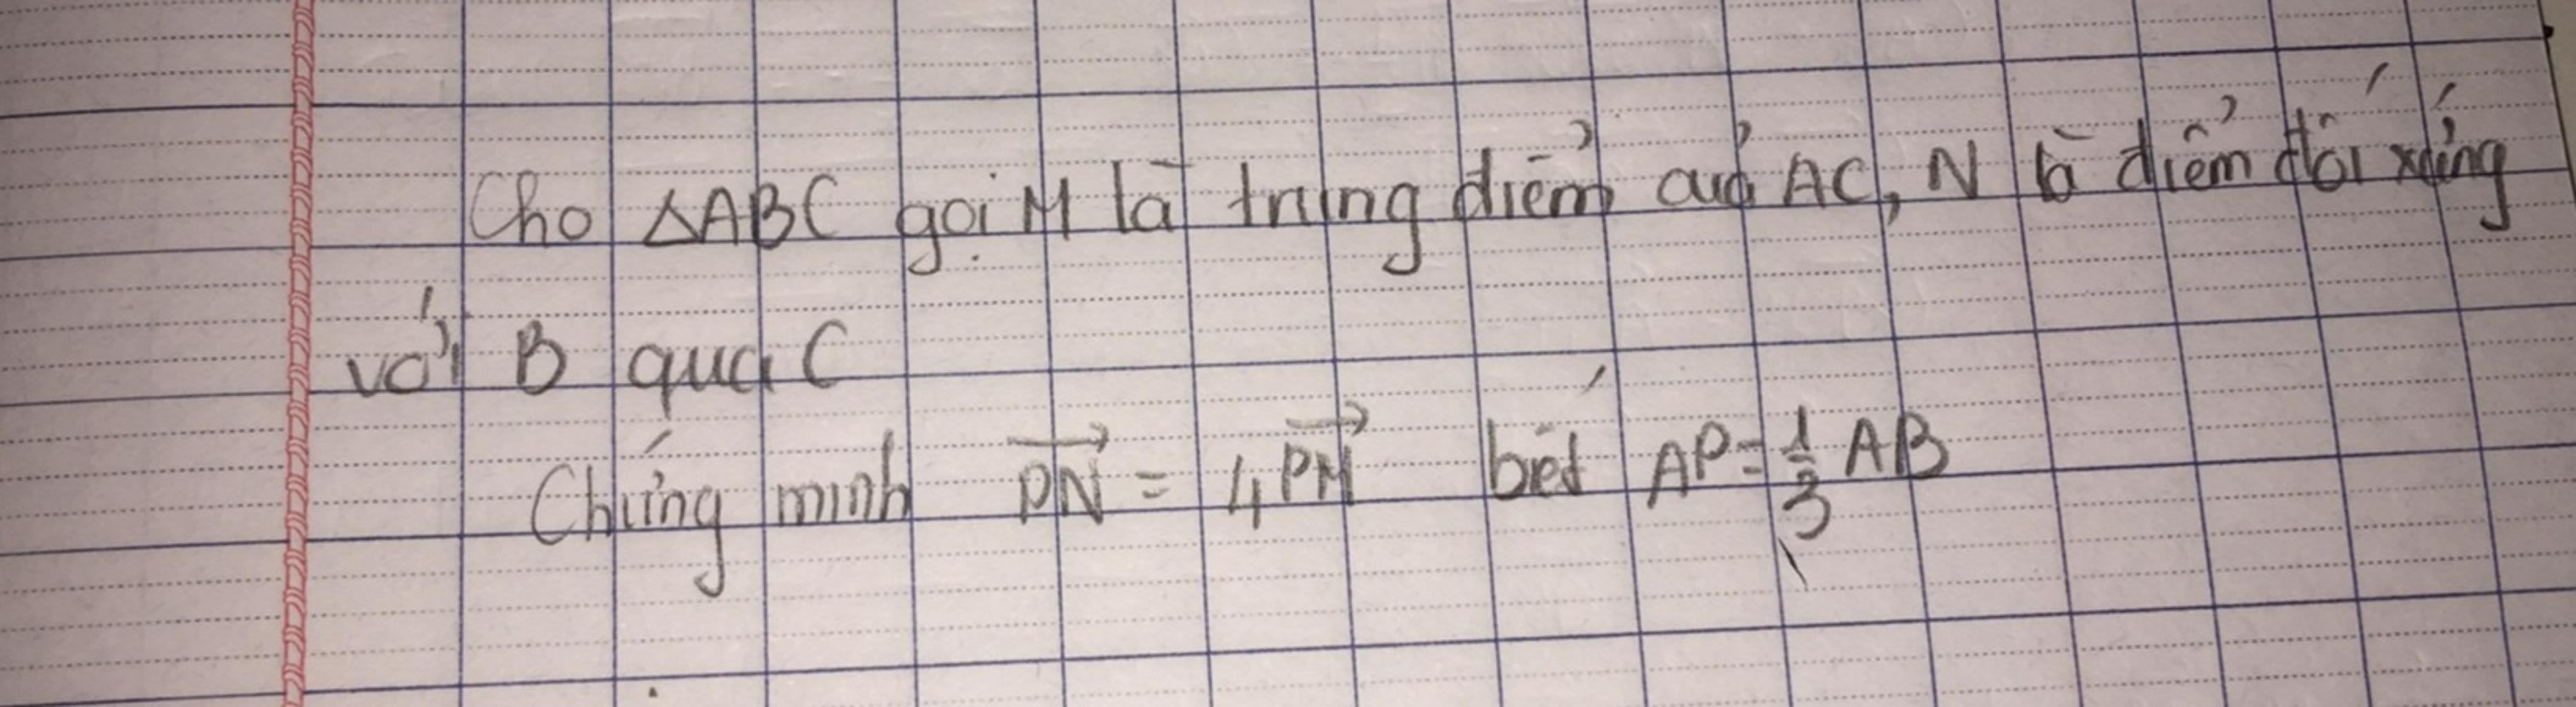 Cho ΔABC gọi M là trung điểm của AC, N là điểm đối xứng
với B qua C
Chứng minh \overrightarrow{PN} = 4\overrightarrow{PM} biết AP = \frac{1}{3} AB